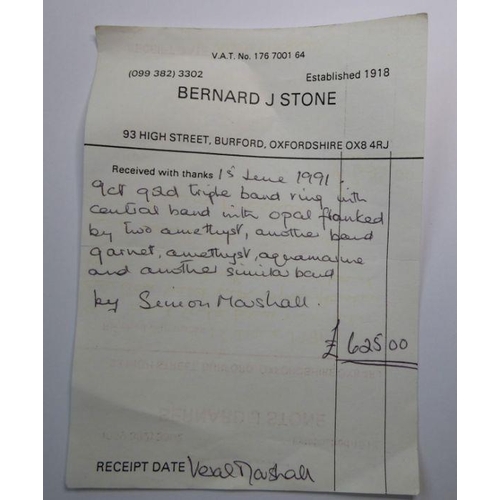 V.A.T. No. 176 7001 64
(099 382) 3302 Established 1918
BERNARD J STONE
93 HIGH STREET, BURFORD, OXFORDSHIRE OX8 4RJ
Received with thanks 1st June 1991.
9ct gold triple band ring with
central band with opal flanked
by two amethyst, another band
garnet, amethyst, aquamarine
and another similar band
by Simon Marshall.
£ 625 00
RECEIPT DATE Marshall